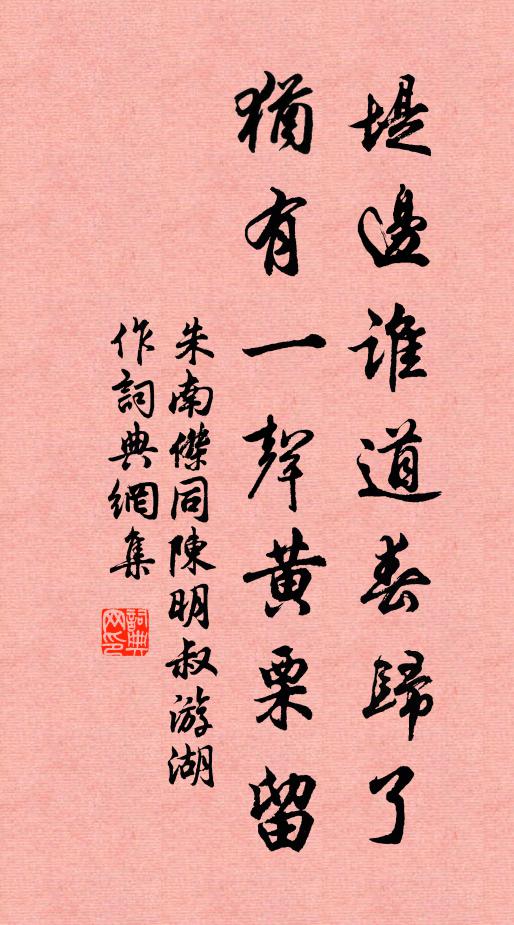 堤邊誰道春歸了
猶有一聲黄栗留
朱南傑同陳明叔游湖
作詞典網集
詞典
网印